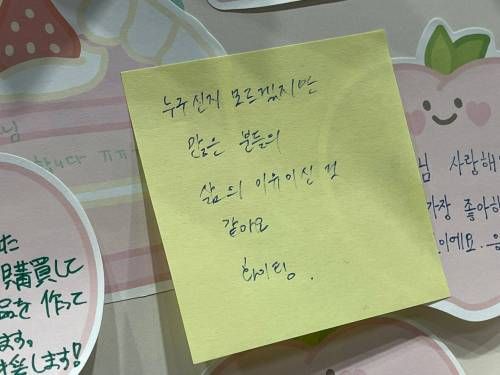 누구신지 모르겠지만
많은 분들의
삶의 이유이신 것
같아요
화이팅.
님
합니다 끄끄
た
購買して
品を作って
ます。
します!
님 사랑해
가장 좋아하
이에요.